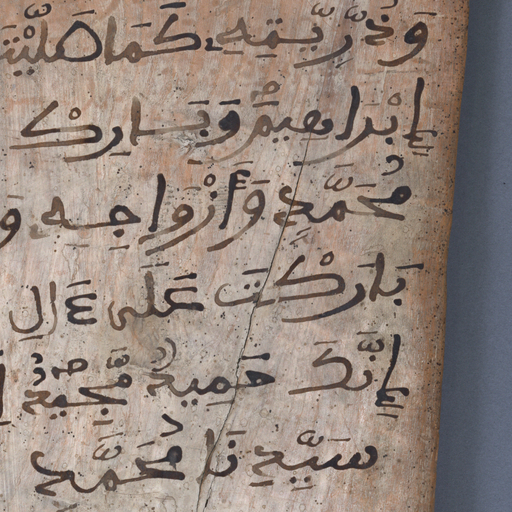 وَذُرِّيَّتِهِ كَمَا صَلَّيْتَ
إِبْرَاهِيمَ وَبَارِكْ
مُحَمَّدٍ وَأَزْوَاجِهِ وَ
بَارَكْتَ عَلَى ءَالِ
إِنَّكَ حَمِيدٌ مَّجِيدٌ
سَيِّدِنَا مُحَمَّدٍ